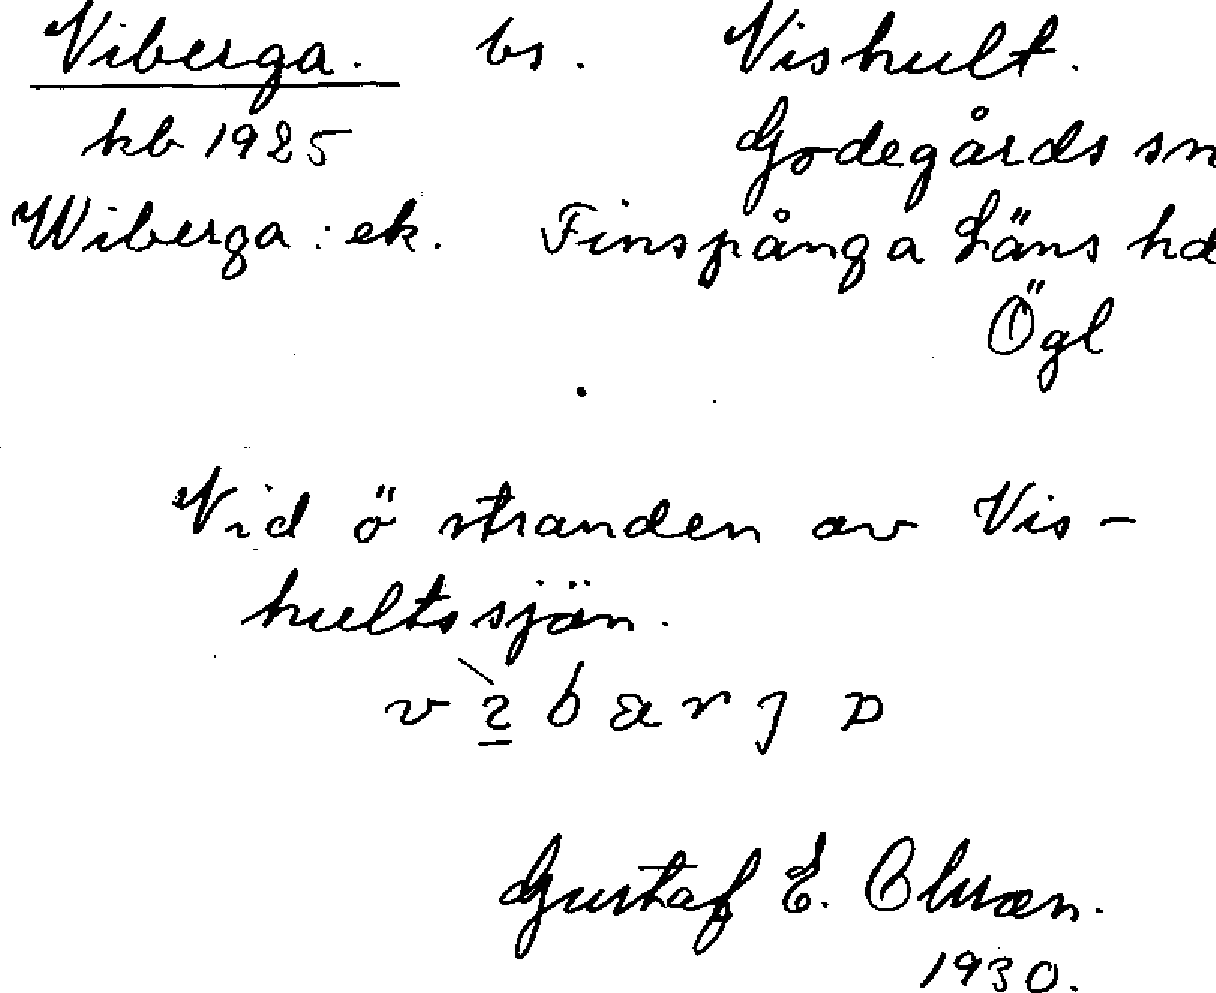 Viberga. bs. Vishult.
kb 1925 Godegårds sn
Wiberga: ek. Finspånga Läns hd
Ögl
Vid ö stranden av Vis-
hultssjön.
Gustaf E. Olsson.
1930.